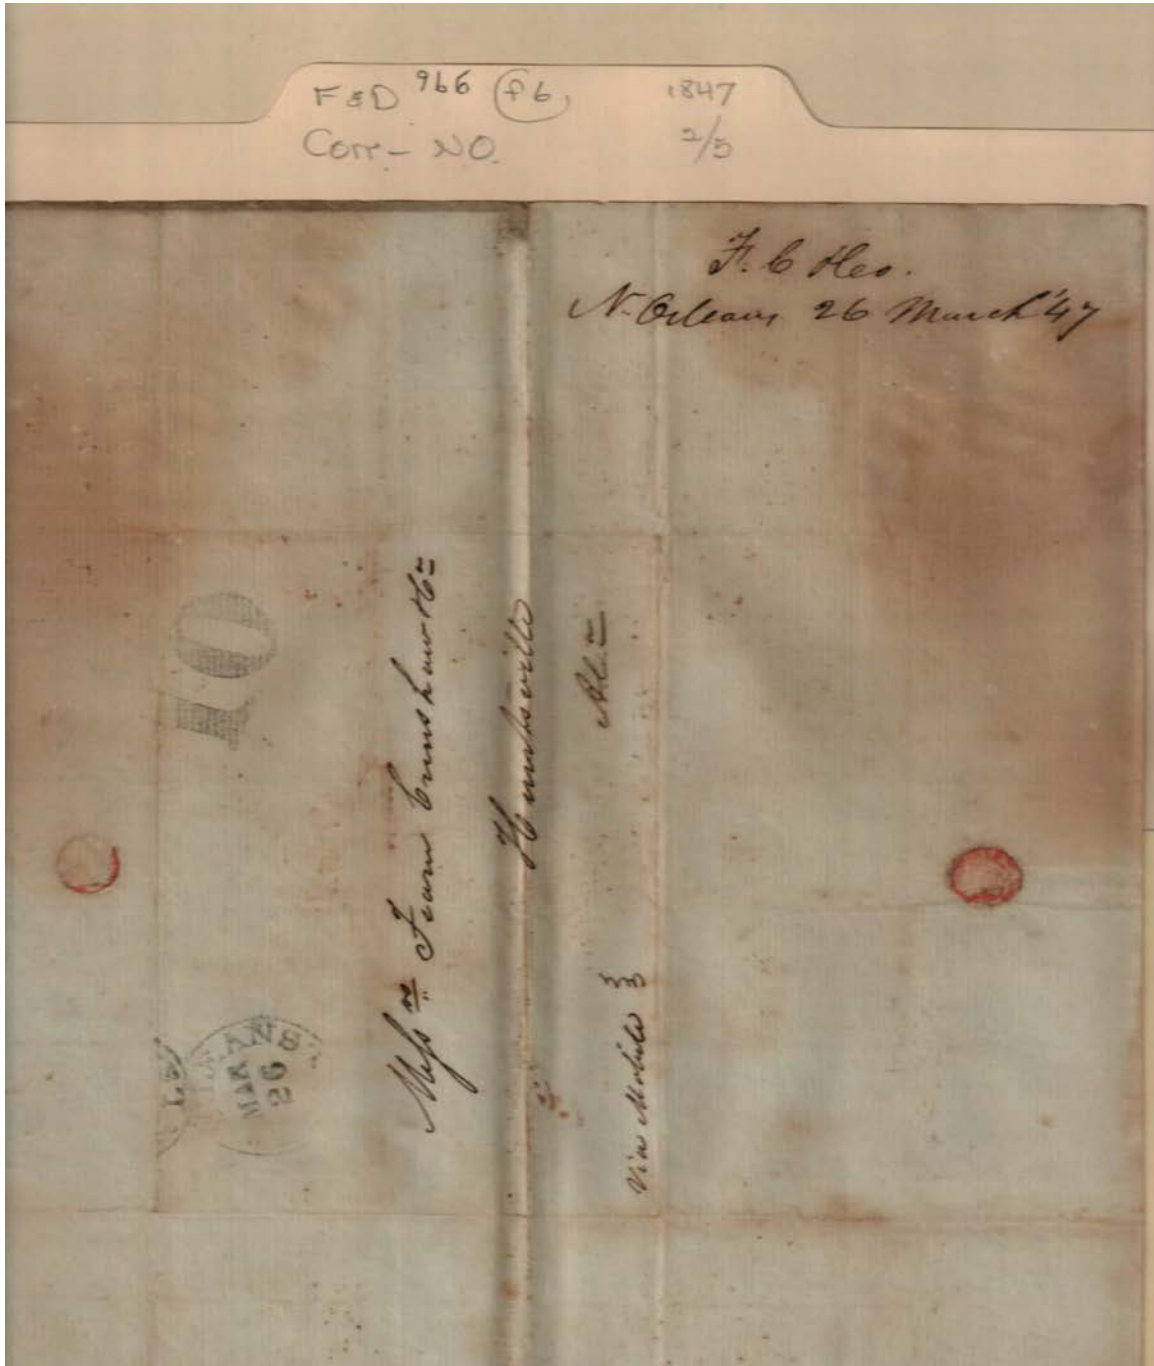 F&D 966 (f6) 1847
Corr- NO. 2/5
F. C
N. Orleans 26 March '47
10
Messrs Fearn Crenshaw & Co
Huntsville
Ala
Via Mobile
LEANS
MAR
26